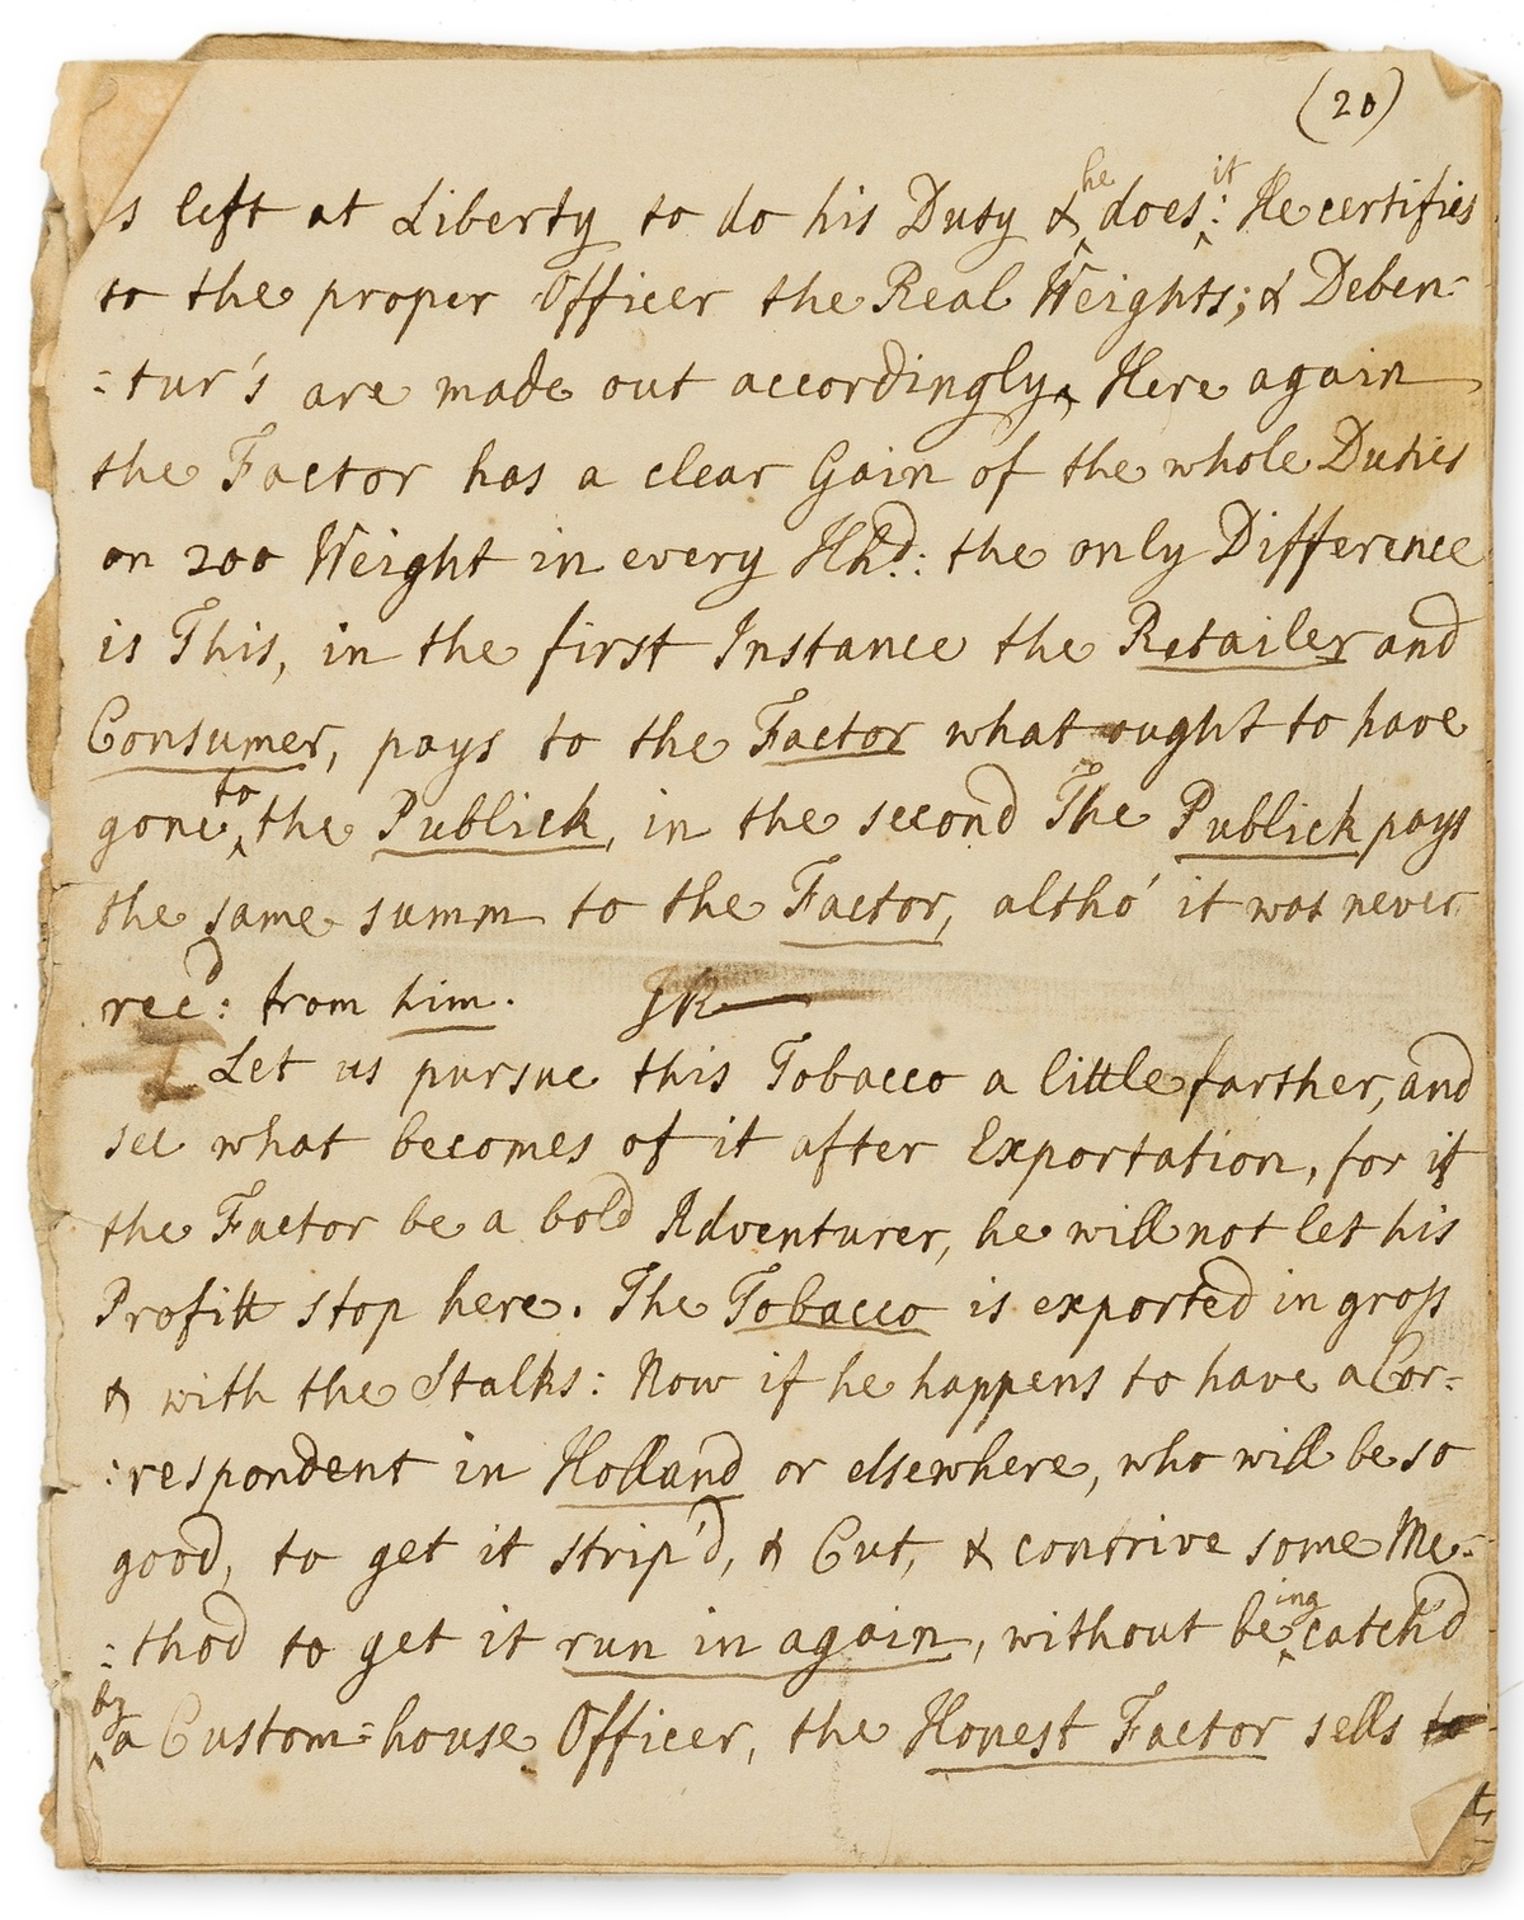 (20)
s left at Liberty to do his Duty & he does it: He certifies
to the proper Officer the Real Weights; & Deben-
=tur's are made out accordingly, Here again
the Factor has a clear Gain of the whole Duties
on 200 Weight in every Hhd: the only Difference
is This, in the first Instance the Retailer and
Consumer, pays to the Factor what ought to have
gone to the Publick, in the second The Publick pays
the same summ to the Factor, altho' it was never
rec'd: from him.
Let us pursue this Tobacco a little farther, and
see what becomes of it after Exportation, for if
the Factor be a bold Adventurer, he will not let his
Profitt stop here. The Tobacco is exported in gross
& with the Stalks: Now if he happens to have a Cor=
:respondent in Holland or elsewhere, who will be so
good, to get it strip'd, & Cut, & contrive some Me=
:thod to get it run in again, without being catch'd
by a Custom=house Officer, the Honest Factor sells to